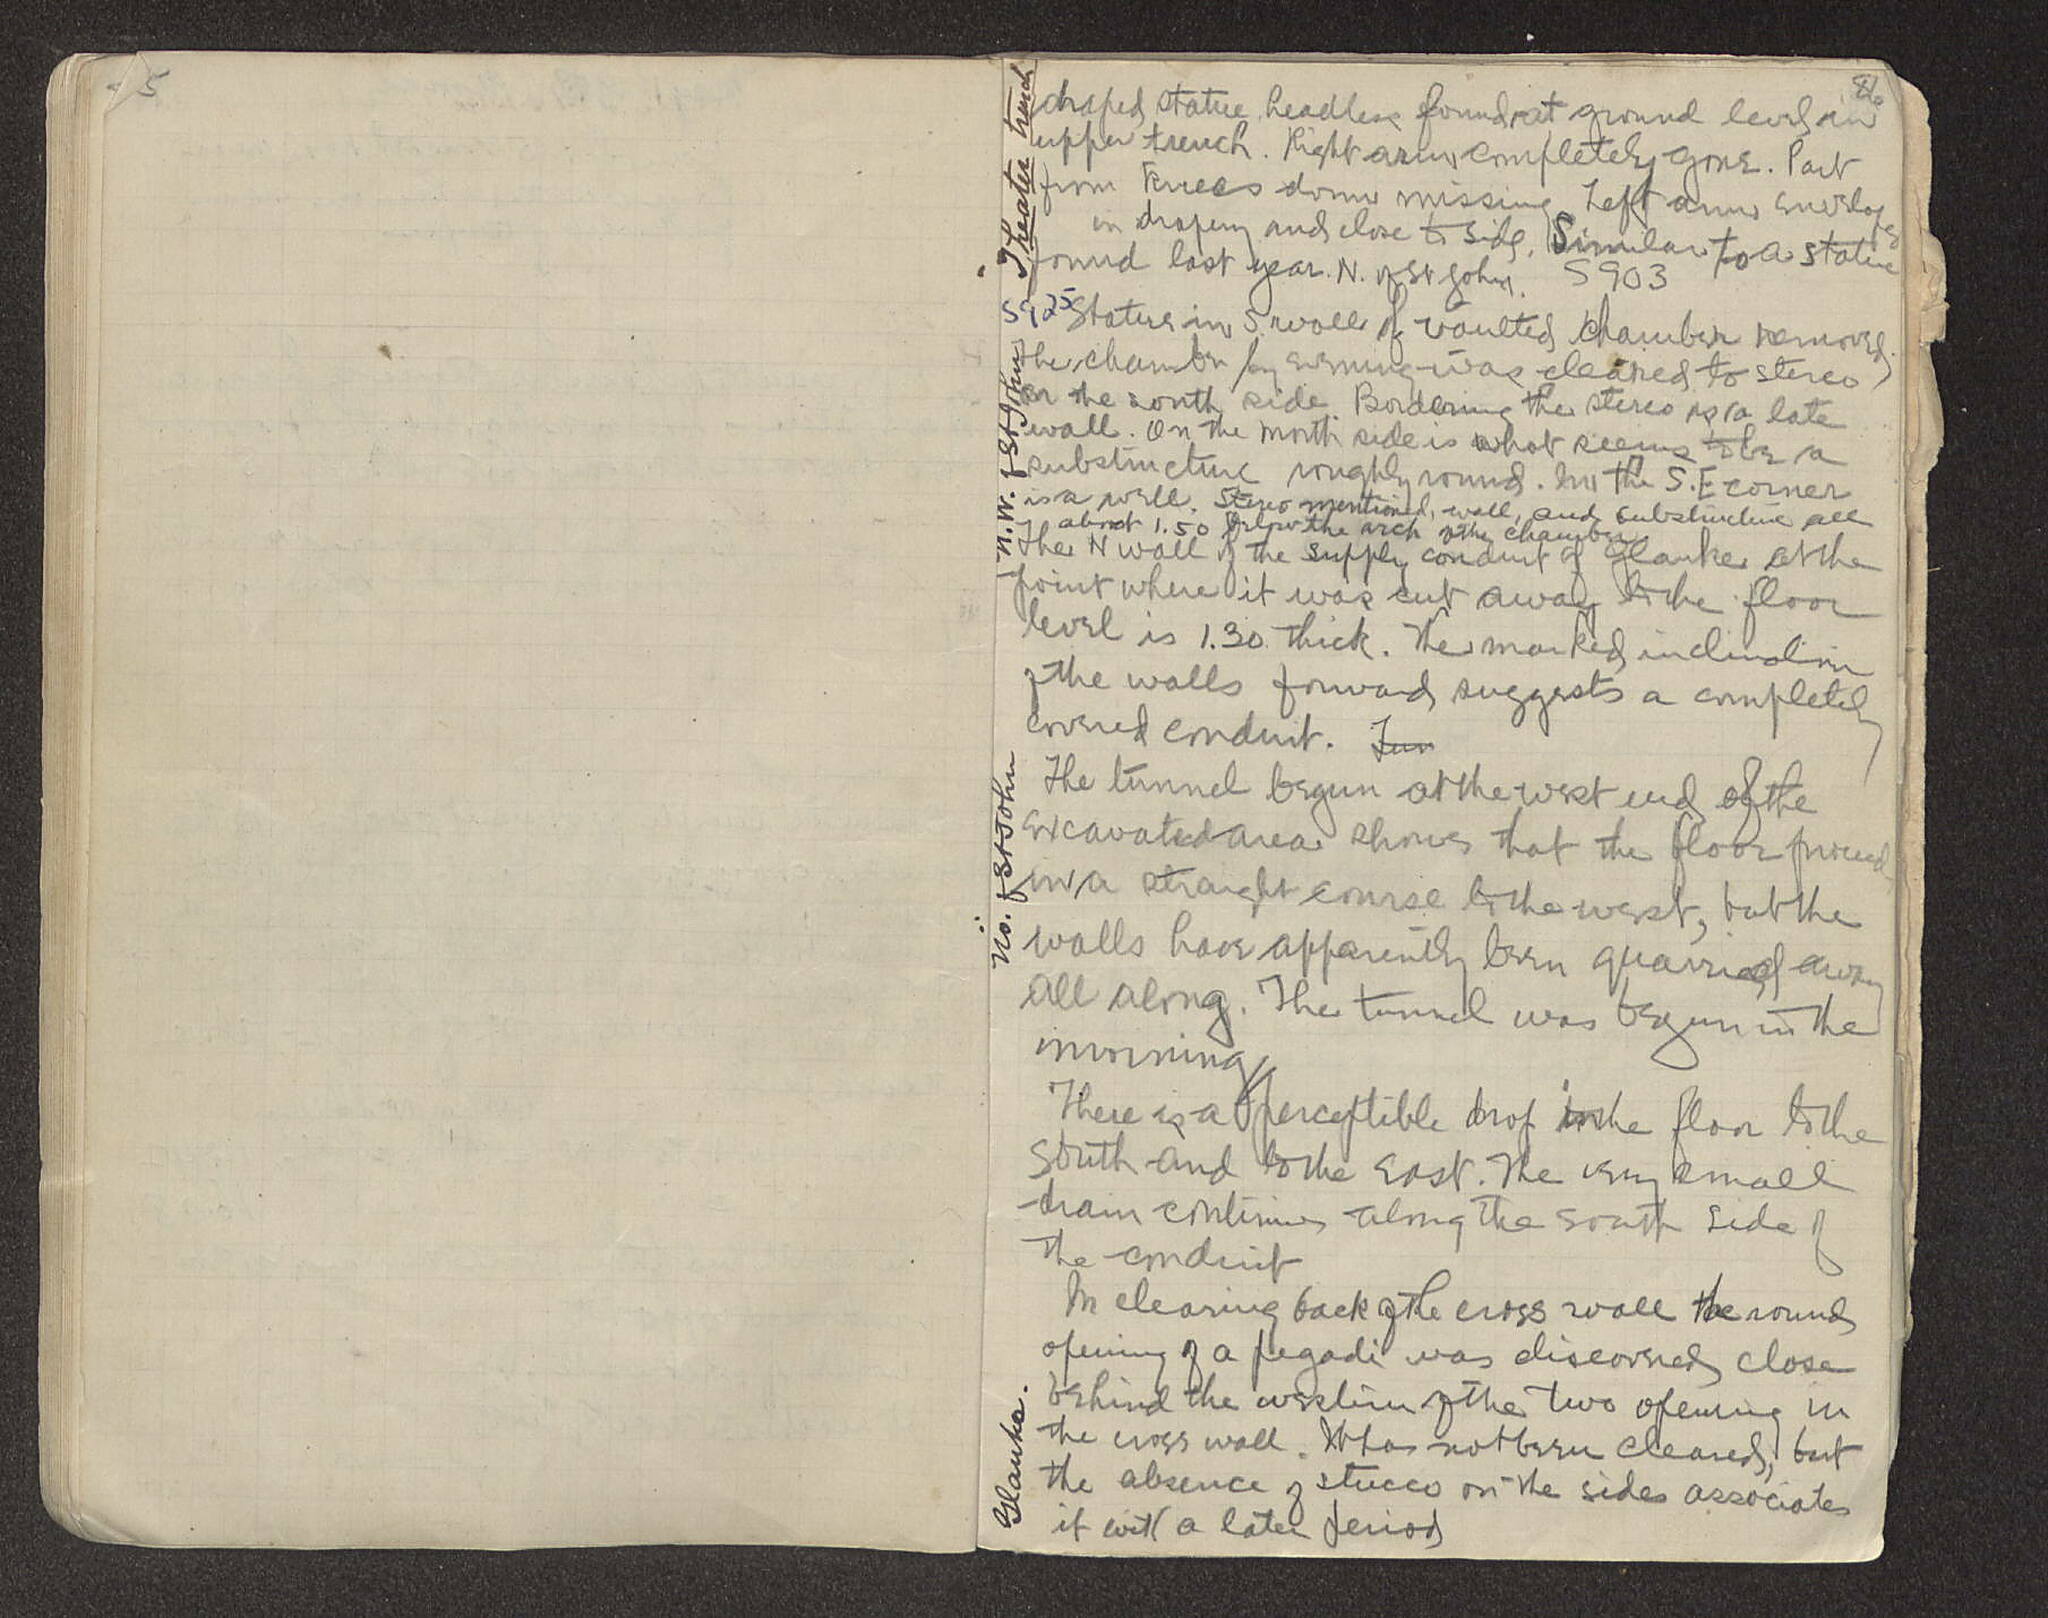 5
86
Theater trench
draped statue headless found at ground level in
upper trench. Right arm completely gone. Part
from knees down missing. Left arm enveloped
in drapery and close to side. Similar to a statue
found last year. N. of St John. S 903
S 925
N.W. of St John
Statue in S. wall of vaulted chamber removed.
The chamber by evening was cleared to stereo
on the south side. Bordering the stereo is a late
wall. On the north side is what seems to be a
substructure roughly round. In the S.E corner
is a well. Stereo mentioned, wall, and substructure all
about 1.50 below the arch of the chamber.
No. of St John
The N wall of the supply conduit of Glauke at the
point where it was cut away to the floor
level is 1.30 thick. The marked inclination
of the walls forward suggests a completely
covered conduit. Tun
The tunnel begun at the west end of the
excavated area shows that the floor proceeds
in a straight course to the west, but the
walls have apparently been quarried away
all along. The tunnel was begun in the
morning
There is a perceptible drop in the floor to the
south and to the east. The very small
drain continues along the south side of
the conduit
Glauke.
In clearing back of the cross wall the round
opening of a pegadi was discovered close
behind the western of the two opening in
the cross wall. It has not been cleared, but
the absence of stucco on the sides associates
it with a later period